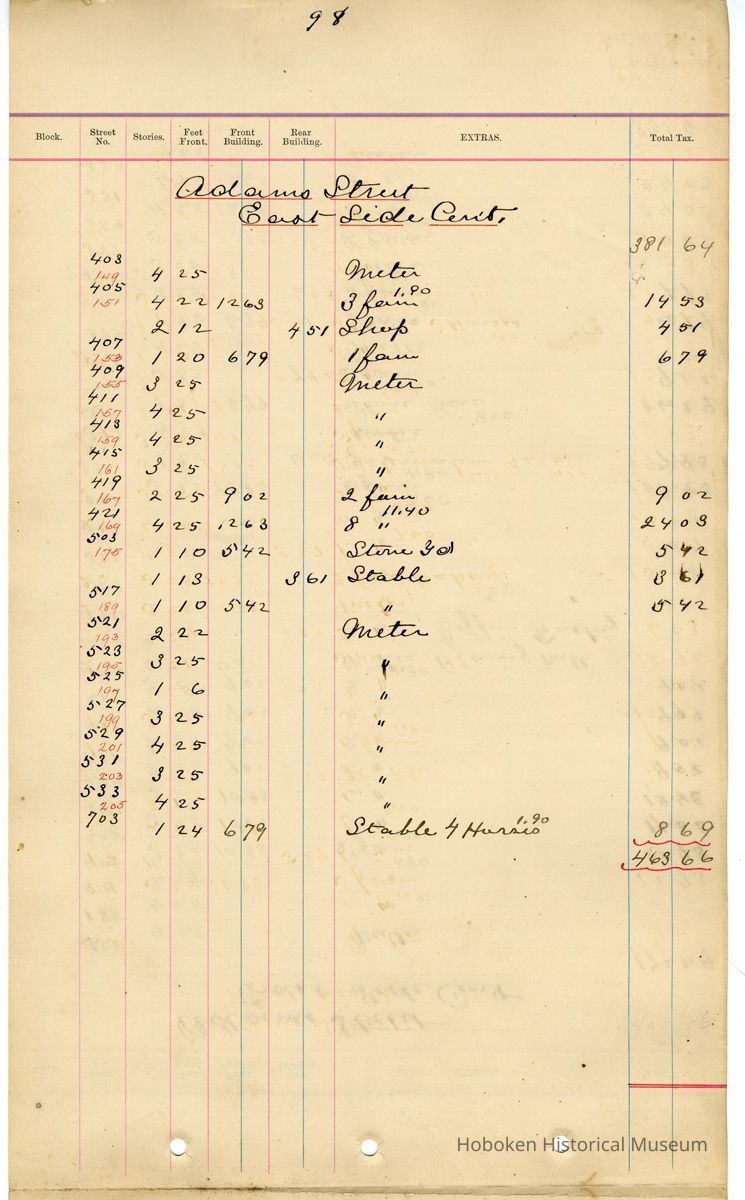 98
Block. Street No. Stories. Feet Front. Front Building. Rear Building. EXTRAS. Total Tax.
Adams Street
East Side Cont.
381 64
403
149 4 25 Meter
405 1.90
151 4 22 12 63 3 fam 14 53
2 12 4 51 Shop 4 51
407
153 1 20 6 79 1 fam 6 79
409
155 3 25 Meter
411
157 4 25 "
413
159 4 25 "
415
161 3 25 "
419
167 2 25 9 02 2 fam 9 02
421 11.40
169 4 25 12 63 8 " 24 03
503
175 1 10 5 42 Store 5 42
1 13 3 61 Stable 3 61
517
189 1 10 5 42 " 5 42
521
193 2 22 Meter
523
195 3 25 "
525
197 1 6 "
527
199 3 25 "
529
201 4 25 "
531
203 3 25 "
533
205 4 25 "
703 1.90
1 24 6 79 Stable 4 Horses 8 69
463 66
Hoboken Historical Museum